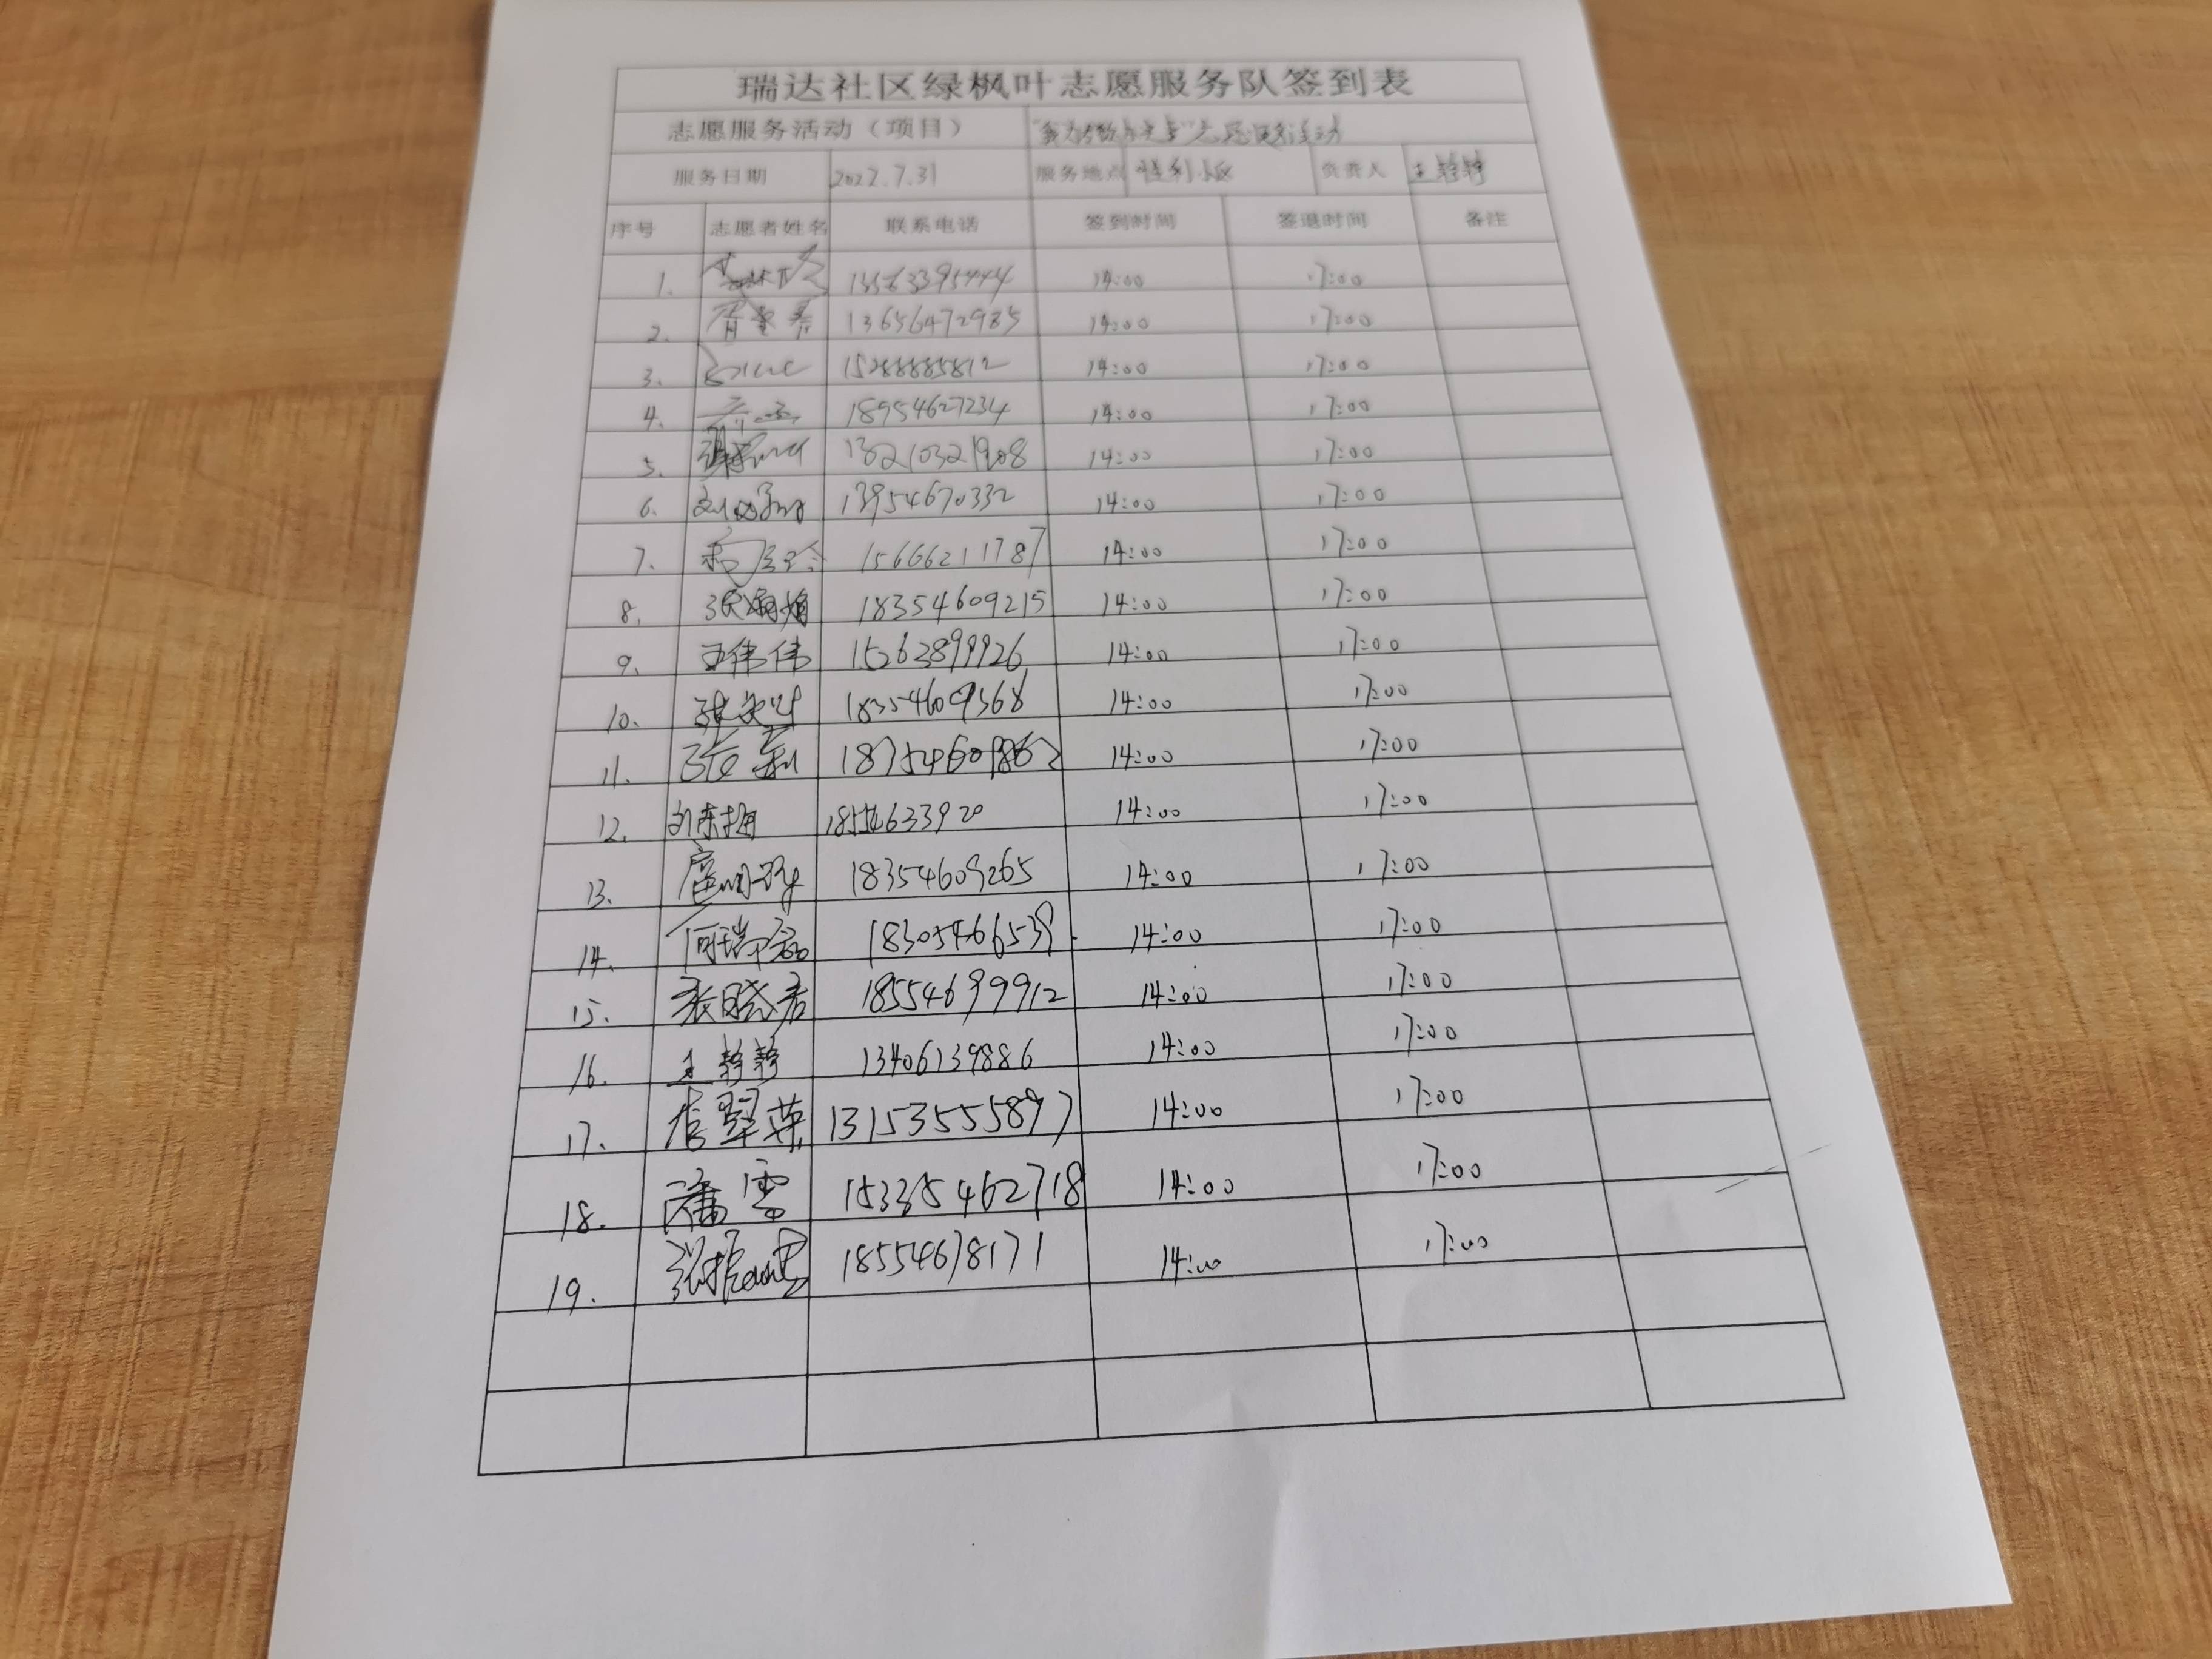 瑞达社区绿枫叶志愿服务队签到表
志愿服务活动（项目） "我为群众办实事"志愿服务活动
服务日期 2022.7.31 服务地点 胜利小区 负责人 王静静
序号 志愿者姓名 联系电话 签到时间 签退时间 备注
1. 13563395444 14:00 17:00
2. 13656472985 14:00 17:00
3. 15288885812 14:00 17:00
4. 18954627234 14:00 17:00
5. 13210321908 14:00 17:00
6. 13954670332 14:00 17:00
7. 15666211787 14:00 17:00
8. 18354609215 14:00 17:00
9. 王伟伟 15263899926 14:00 17:00
10. 18354609368 14:00 17:00
11. 张莉 14:00 17:00
12. 刘东梅 14:00 17:00
13. 18354609265 14:00 17:00
14. 18305466539 14:00 17:00
15. 张晓君 18554699912 14:00 17:00
16. 王静静 13406139886 14:00 17:00
17. 信翠荣 13153555897 14:00 17:00
18. 潘雪 15335462718 14:00 17:00
19. 18554678171 14:00 17:00